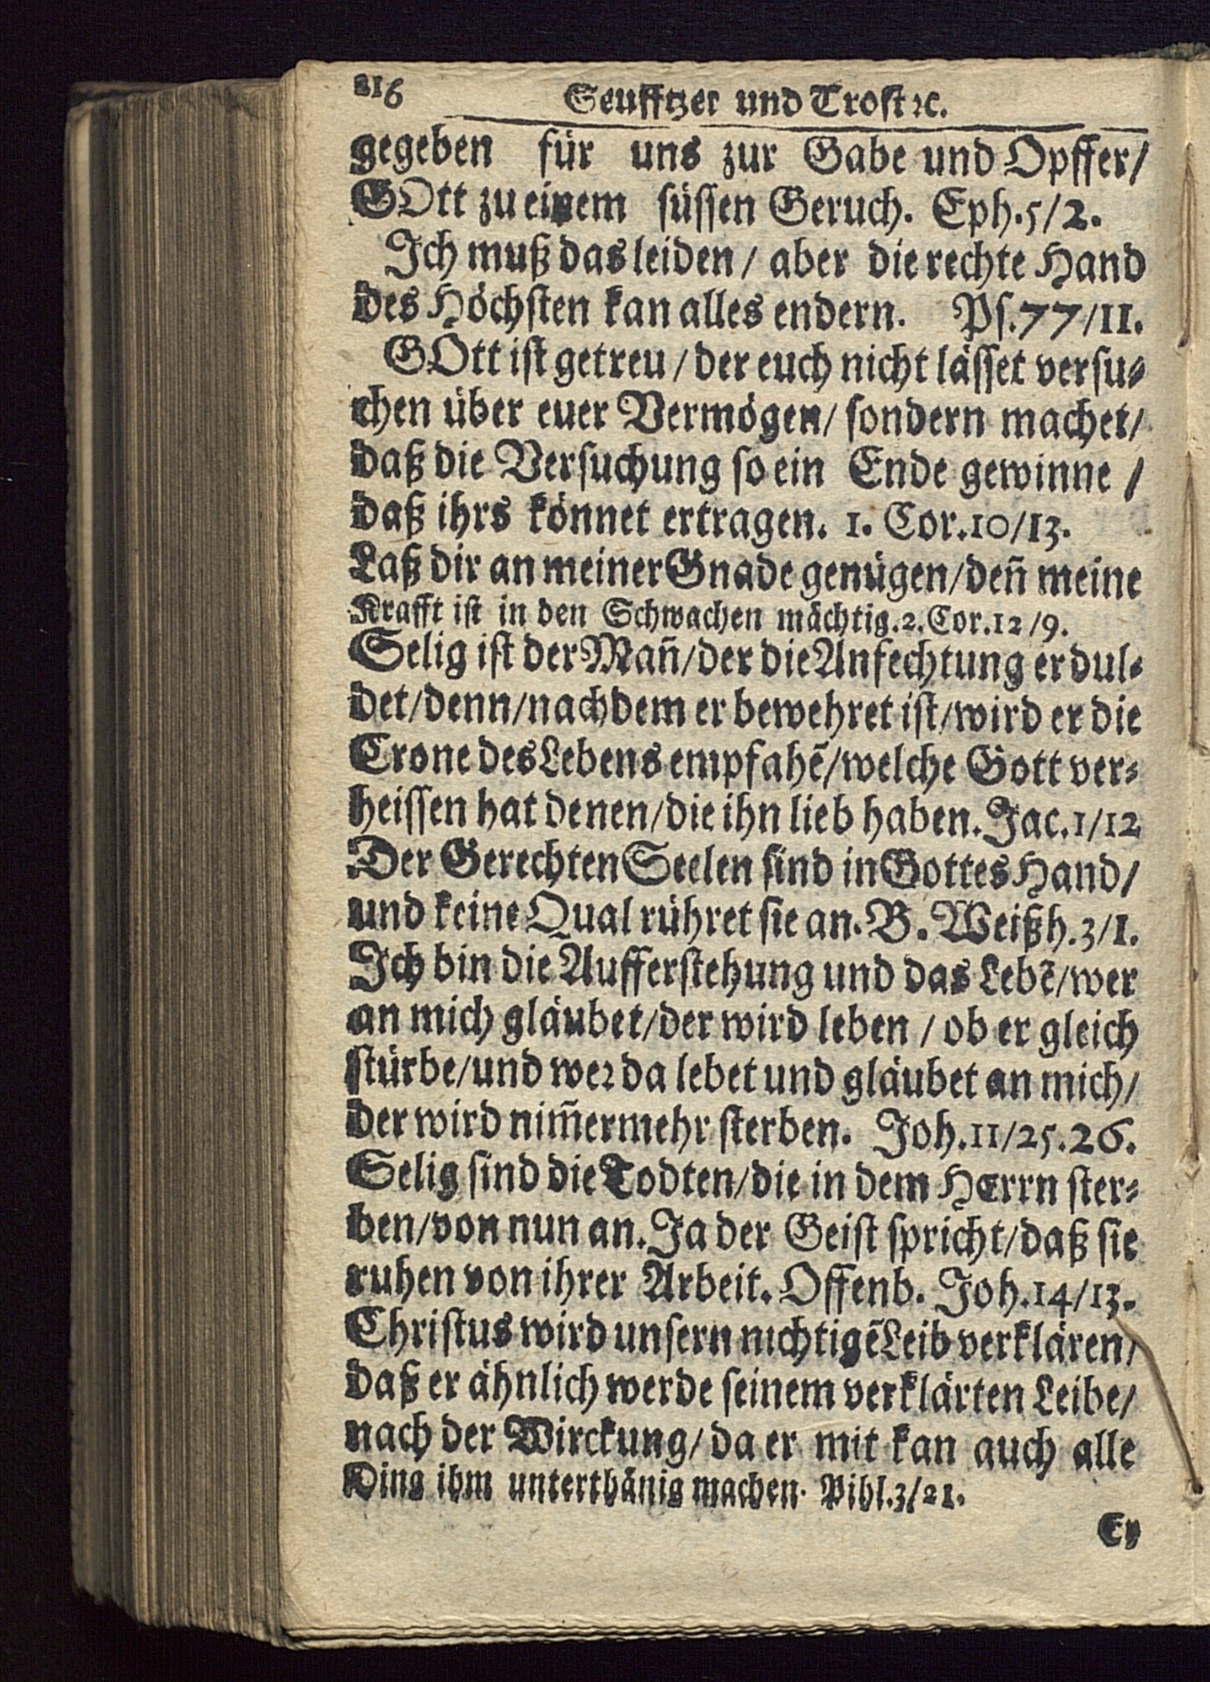 216 Seufftzer und Trost ꝛc.
gegeben für uns zur Gabe und Opffer/
GOtt zu einem süssen Geruch. Eph.5/2.
Ich muß das leiden / aber die rechte Hand
des Höchsten kan alles endern. Ps.77/11.
GOtt ist getreu / der euch nicht lässet versu⸗
chen über euer Vermögen/ sondern machet/
daß die Versuchung so ein Ende gewinne /
daß ihrs könnet ertragen. 1. Cor.10/13.
Laß dir an meiner Gnade genügen/deñ meine
Krafft ist in den Schwachen mächtig.2.Cor.12/9.
Selig ist der Mañ/der die Anfechtung erdul⸗
det/denn/nachdem er bewehret ist/wird er die
Crone des Lebens empfahẽ/welche Gott ver⸗
heissen hat denen/die ihn lieb haben. Jac.1/12
Der Gerechten Seelen sind in Gottes Hand/
und keine Qual rühret sie an. B. Weißh.3/1.
Ich bin die Aufferstehung und das Lebẽ/wer
an mich gläubet/der wird leben / ob er gleich
stürbe/und weꝛ da lebet und gläubet an mich/
der wird nim̃ermehr sterben. Joh.11/25.26.
Selig sind die Todten/die in dem HErrn ster⸗
ben/von nun an. Ja der Geist spricht/daß sie
ruhen von ihrer Arbeit. Offenb. Joh.14/13.
Christus wird unsern nichtigẽ Leib verklären/
daß er ähnlich werde seinem verklärten Leibe/
nach der Wirckung/ da er mit kan auch alle
Ding ihm unterthänig machen. Pihl.3/21.
Ey